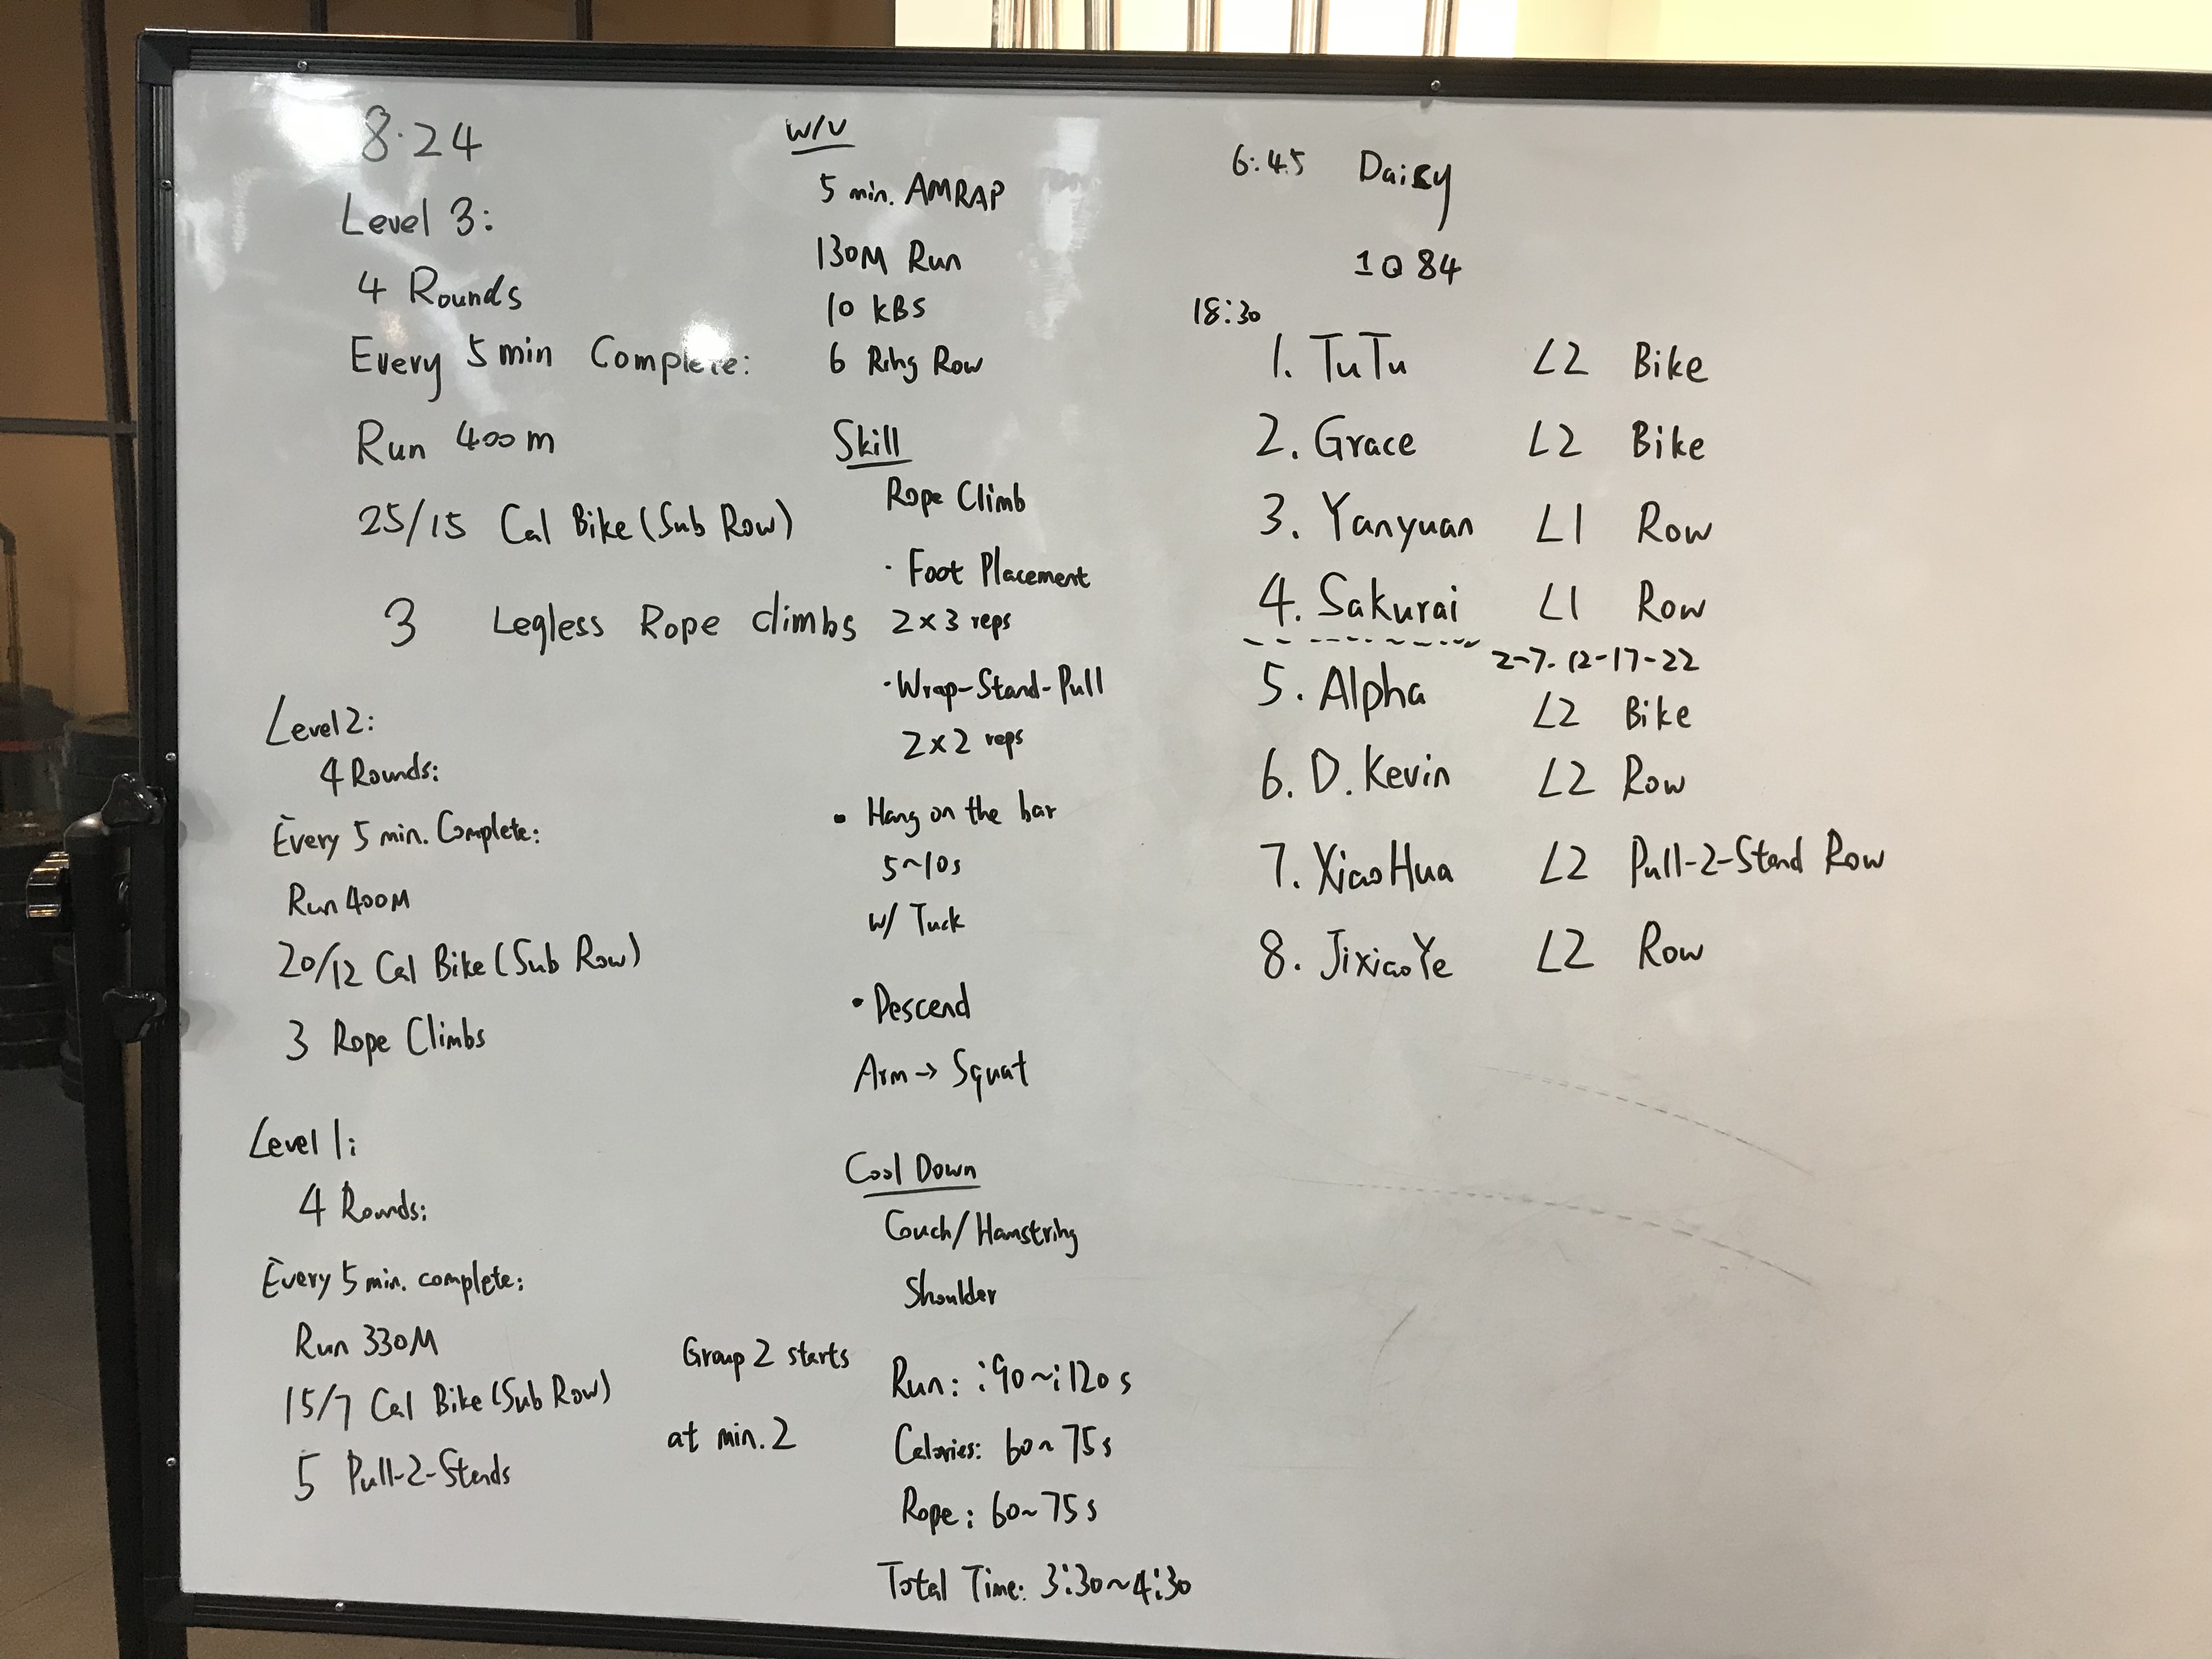 8.24
Level 3:
4 Rounds
Every 5 min Complete:
Run 400m
25/15 Cal Bike (Sub Row)
3 Legless Rope climbs
Level 2:
4 Rounds:
Every 5 min. Complete:
Run 400M
20/12 Cal Bike (Sub Row)
3 Rope Climbs
Level 1:
4 Rounds:
Every 5 min. complete:
Run 330M
15/7 Cal Bike (Sub Row)
5 Pull-2-Stands
Group 2 starts
at min. 2
W/U
5 min. AMRAP
130M Run
10 KBS
6 Ring Row
Skill
Rope Climb
· Foot Placement
2 x 3 reps
· Wrap-Stand-Pull
2 x 2 reps
• Hang on the bar
5~10s
w/ Tuck
• Descend
Arm → Squat
Cool Down
Couch/Hamstring
Shoulder
Run: :90~:120s
Calories: 60~75s
Rope: 60~75s
Total Time: 3:30~4:30
6:45 Daisy
1Q84
18:30
1. TuTu L2 Bike
2. Grace L2 Bike
3. Yanyuan L1 Row
4. Sakurai L1 Row
2-7-12-17-22
5. Alpha L2 Bike
6. D. Kevin L2 Row
7. XiaoHua L2 Pull-2-Stand Row
8. JixiaoYe L2 Row